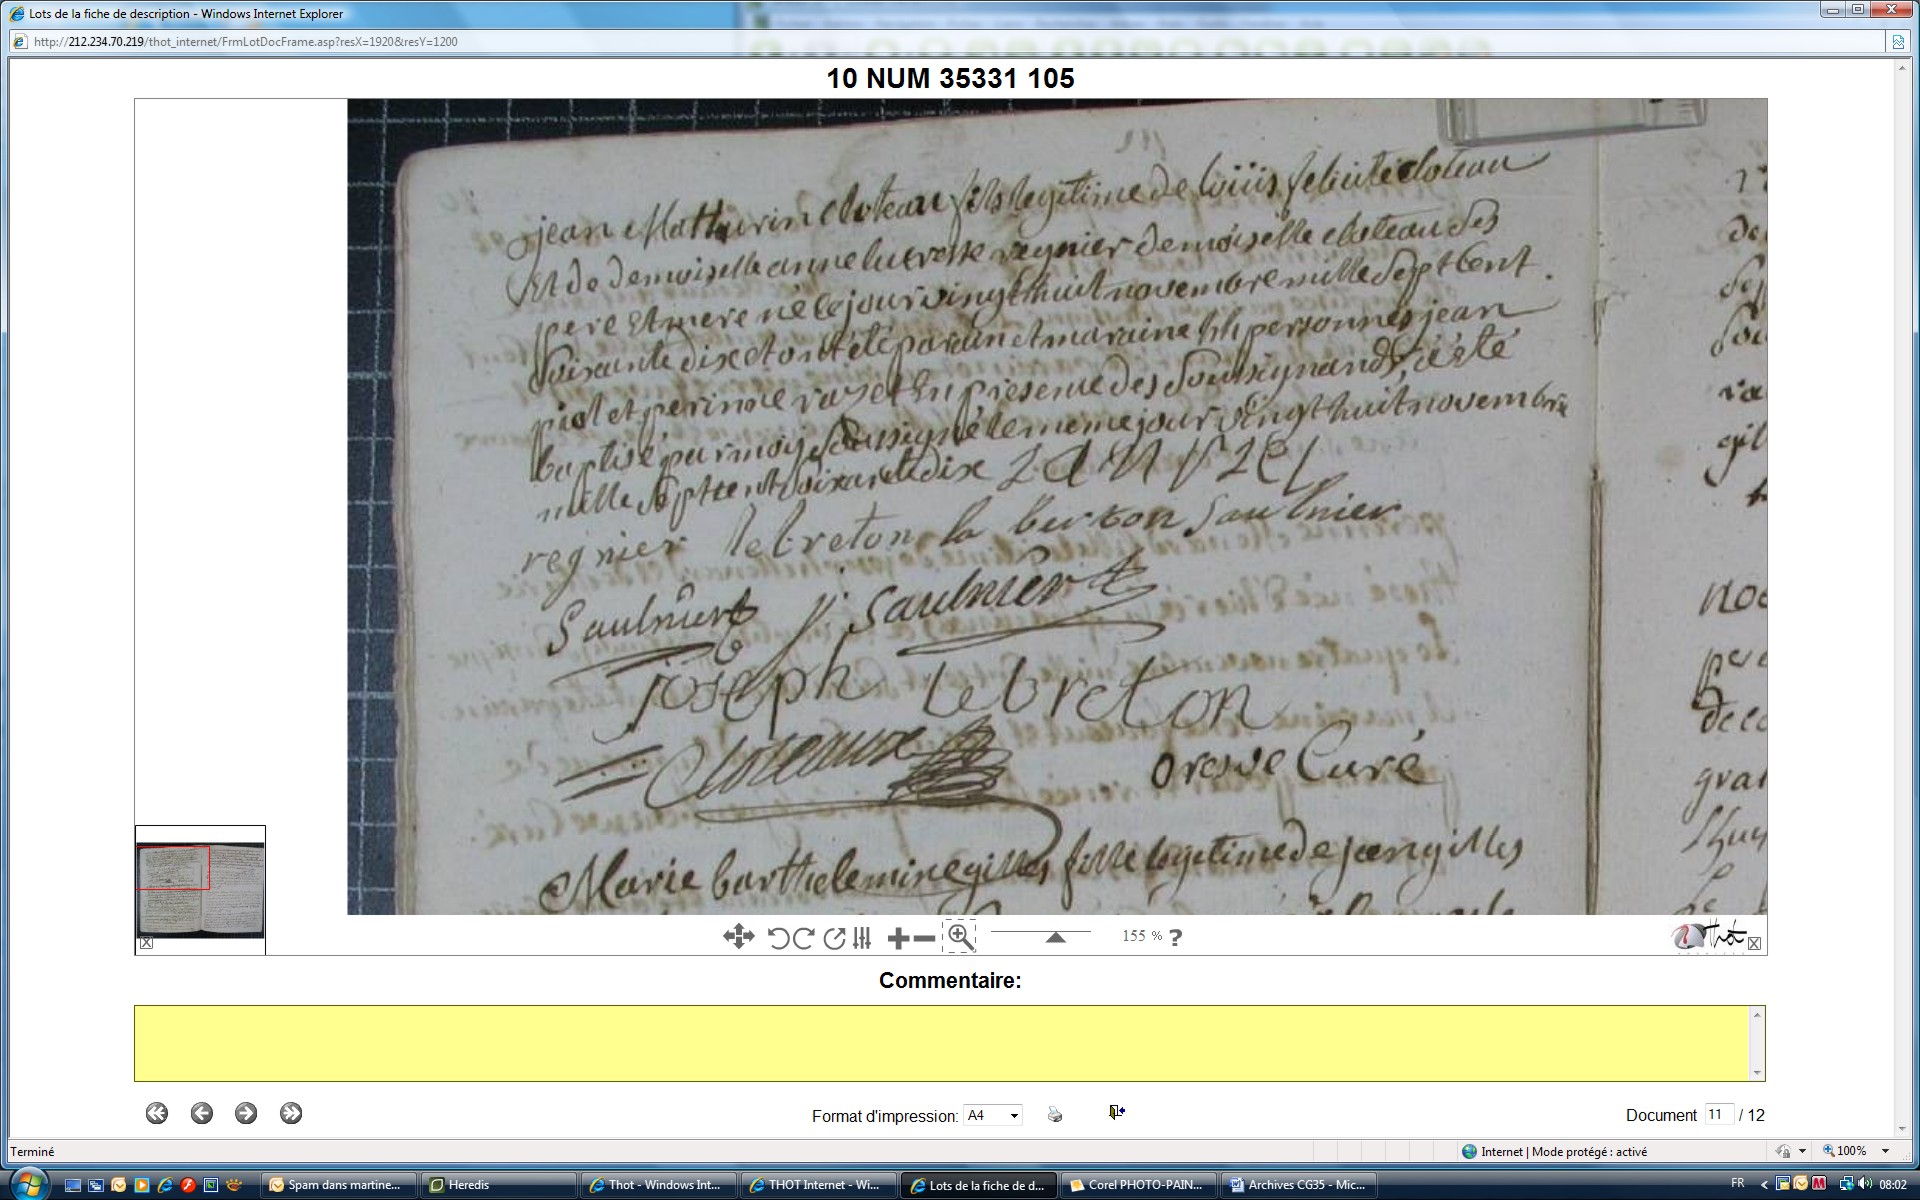 Lots de la fiche de description - Windows Internet Explorer
http://212.234.70.219/thot_internet/FrmLotDocFrame.asp?resX=1920&resY=1200
10 NUM 35331 105
jean Mathurin cloteau fils legitime de loüis felicité cloteau
Et de demoiselle anne lucresse regnier demoiselle cloteau ses
pere Et mere né le jour vingt huit novembre mille Sept Cent
Soixante dix et ont été parain et maraine personnes jean
piol et perinne En presence des Soussignands, a été
baptisé par moy Soussigné le meme jour vingt huit novembre
mille Sept Cent Soixante dix
regnier le breton la berton Saulnier
Saulnier j: Saulnier
joseph lebreton
Cloteaux
oresve Curé
Marie barthelemine gilles fille legitime de jean gilles
155 %
?
Thot
Commentaire:
Format d'impression: A4
Document 11 / 12
Terminé
Internet | Mode protégé : activé
100%
Spam dans martine...
Heredis
Thot - Windows Int...
THOT Internet - Wi...
Lots de la fiche de d...
Corel PHOTO-PAIN...
Archives CG35 - Mic...
FR
08:02